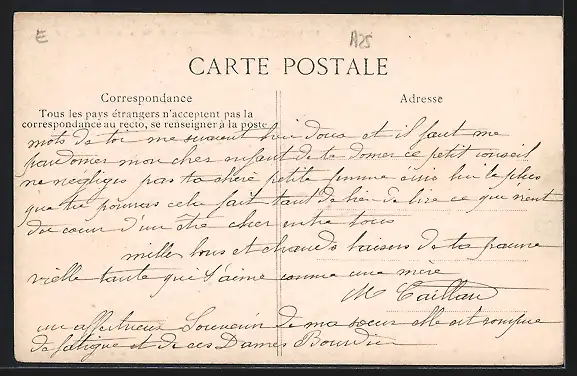 E
A25
CARTE POSTALE
Correspondance
Adresse
Tous les pays étrangers n'acceptent pas la
correspondance au recto, se renseigner à la poste
mots de toi me seraient bien doux et il faut me
pardonner mon cher enfant de te donner ce petit conseil
ne négliges pas ta chère petite femme écris lui le plus
que tu pourras cela fait tant de bien de lire ce qui vient
du cœur d'un être cher entre tous
mille bons et chauds baisers de ta pauvre
vieille tante qui t'aime comme une mère
M Caillau
un affectueux Souvenir de ma sœur elle est rompue
de fatigue et de ces Dames Bourdin